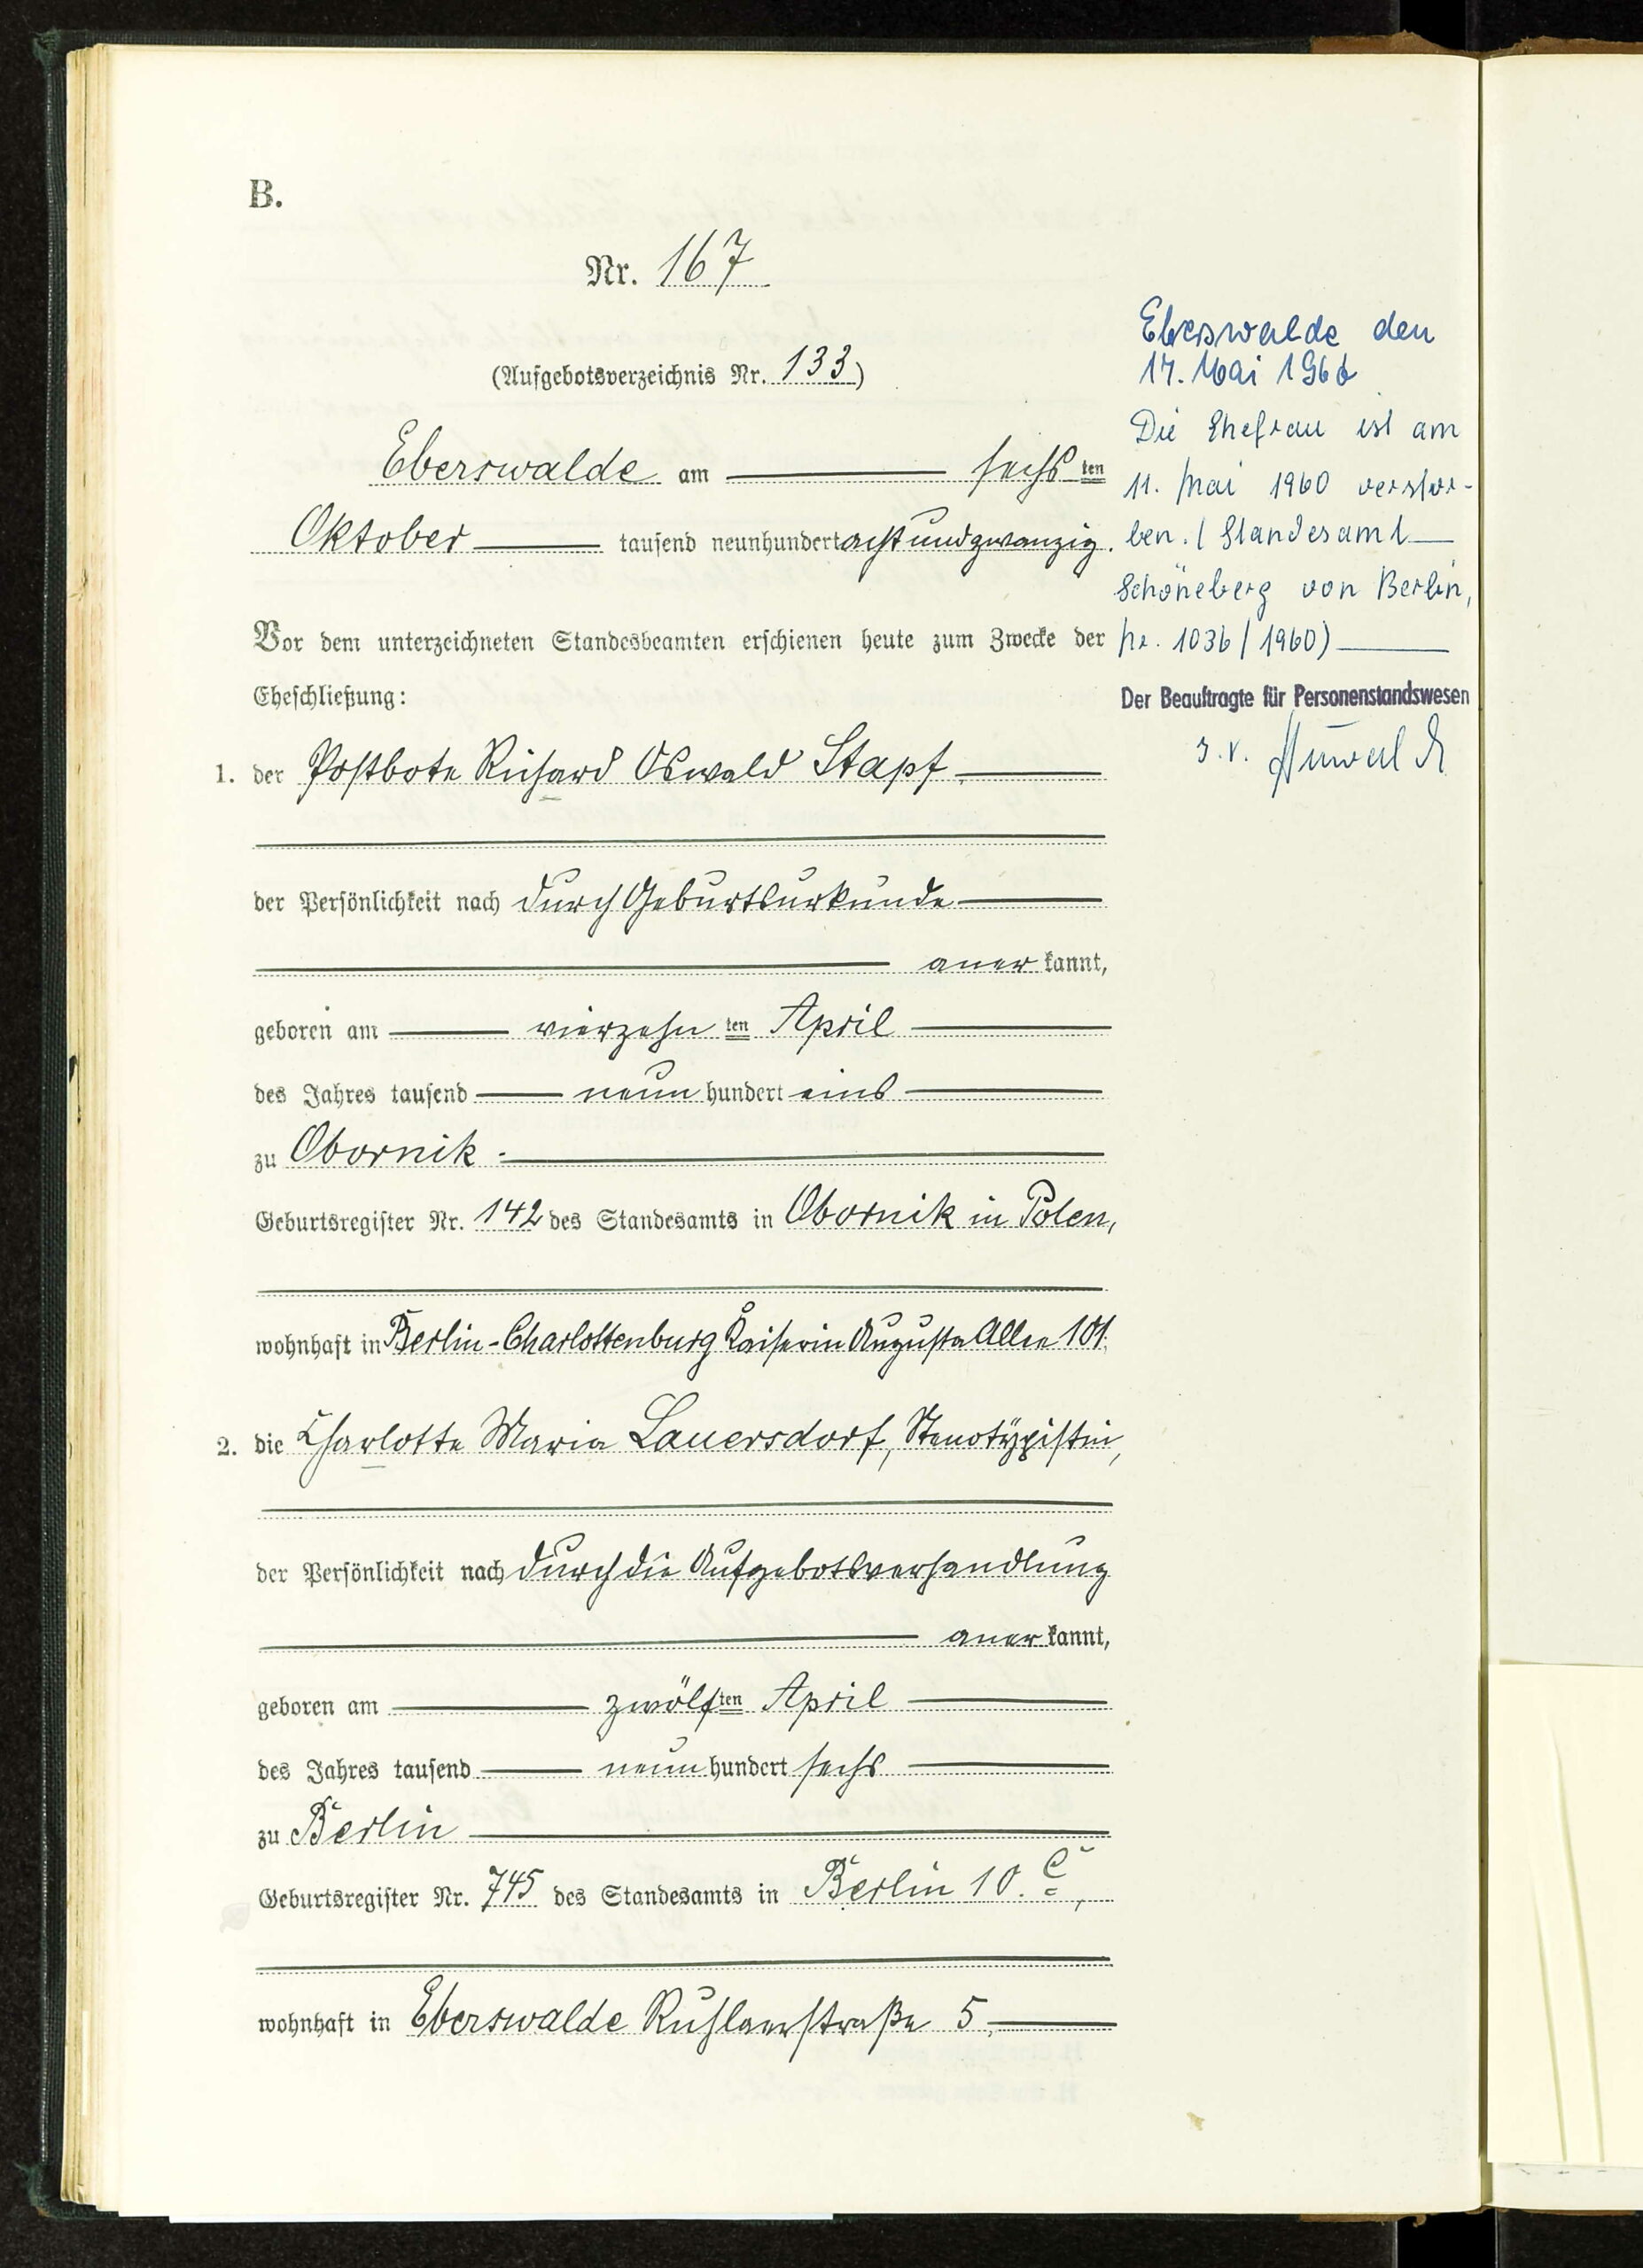 B.
Nr. 167
(Aufgebotsverzeichnis Nr. 133)
Eberswalde am sechs ten
Oktober tausend neunhundert achtundzwanzig.
Vor dem unterzeichneten Standesbeamten erschienen heute zum Zwecke der
Eheschließung:
1. der Postbote Richard Oswald Stapf
der Persönlichkeit nach durch Geburtsurkunde
aner kannt,
geboren am vierzehn ten April
des Jahres tausend neun hundert eins
zu Obornik.
Geburtsregister Nr. 142 des Standesamts in Obornik in Polen,
wohnhaft in Berlin-Charlottenburg Kaiserin Augusta Allee 101.
2. die Charlotte Maria Lauersdorf, Stenotypistin,
der Persönlichkeit nach durch die Aufgebotsverhandlung
aner kannt,
geboren am zwölf ten April
des Jahres tausend neun hundert sechs
zu Berlin
Geburtsregister Nr. 745 des Standesamts in Berlin 10. C,
wohnhaft in Eberswalde Ruhlaerstraße 5,
Eberswalde den
17. Mai 1960
Die Ehefrau ist am
11. Mai 1960 verstor-
ben. (Standesamt
Schöneberg von Berlin,
Nr. 1036/1960)
Der Beauftragte für Personenstandswesen
J.V.